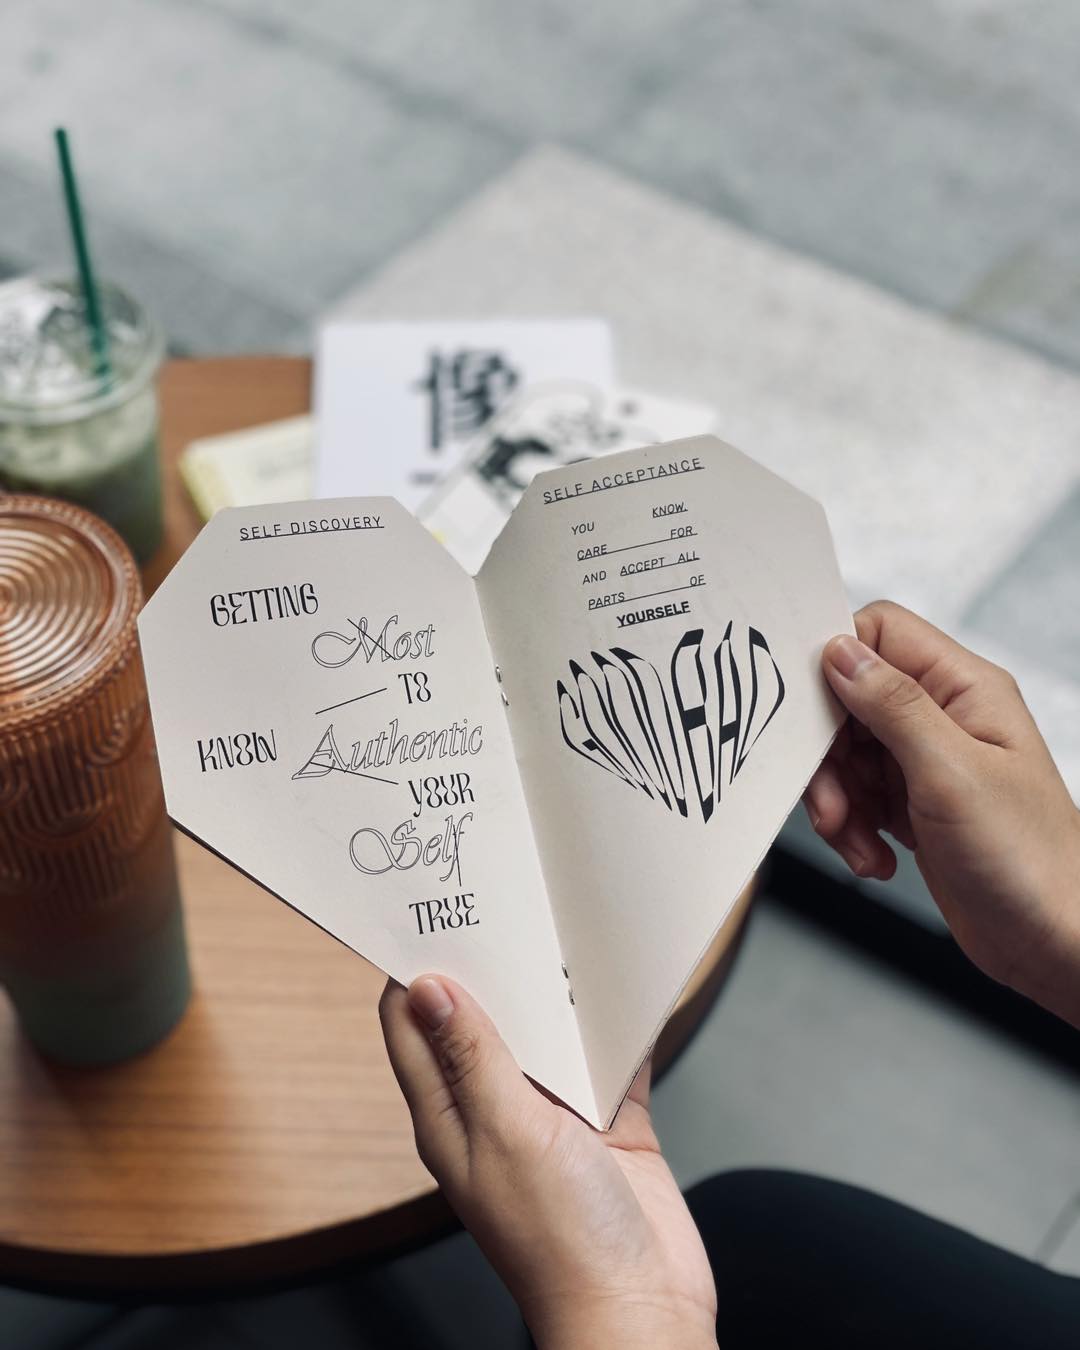 SELF DISCOVERY
GETTING
Most
TO
KNOW Authentic
YOUR
Self
TRUE
SELF ACCEPTANCE
YOU KNOW,
CARE FOR
AND ACCEPT ALL
PARTS OF
YOURSELF
GOOD BAD
像